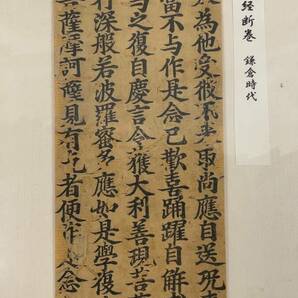 経断巻 鎌倉時代
為他受不来取尚應自送况
當不与作是念已歡喜踊躍自解
与之復自慶言今獲大利善現菩
行深般若波羅蜜多應如是學復
菩薩摩訶薩見有乞者便作是念